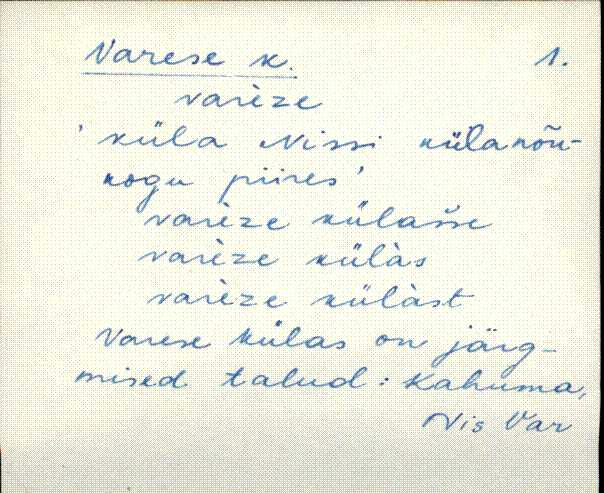 Varese k. 1.
varèze
'küla Nissi külanõu-
kogu piires'
varèze külašše
varèze külàs
varèze külàst
Varese külas on järg-
mised talud: Kahuma,
Nis Var